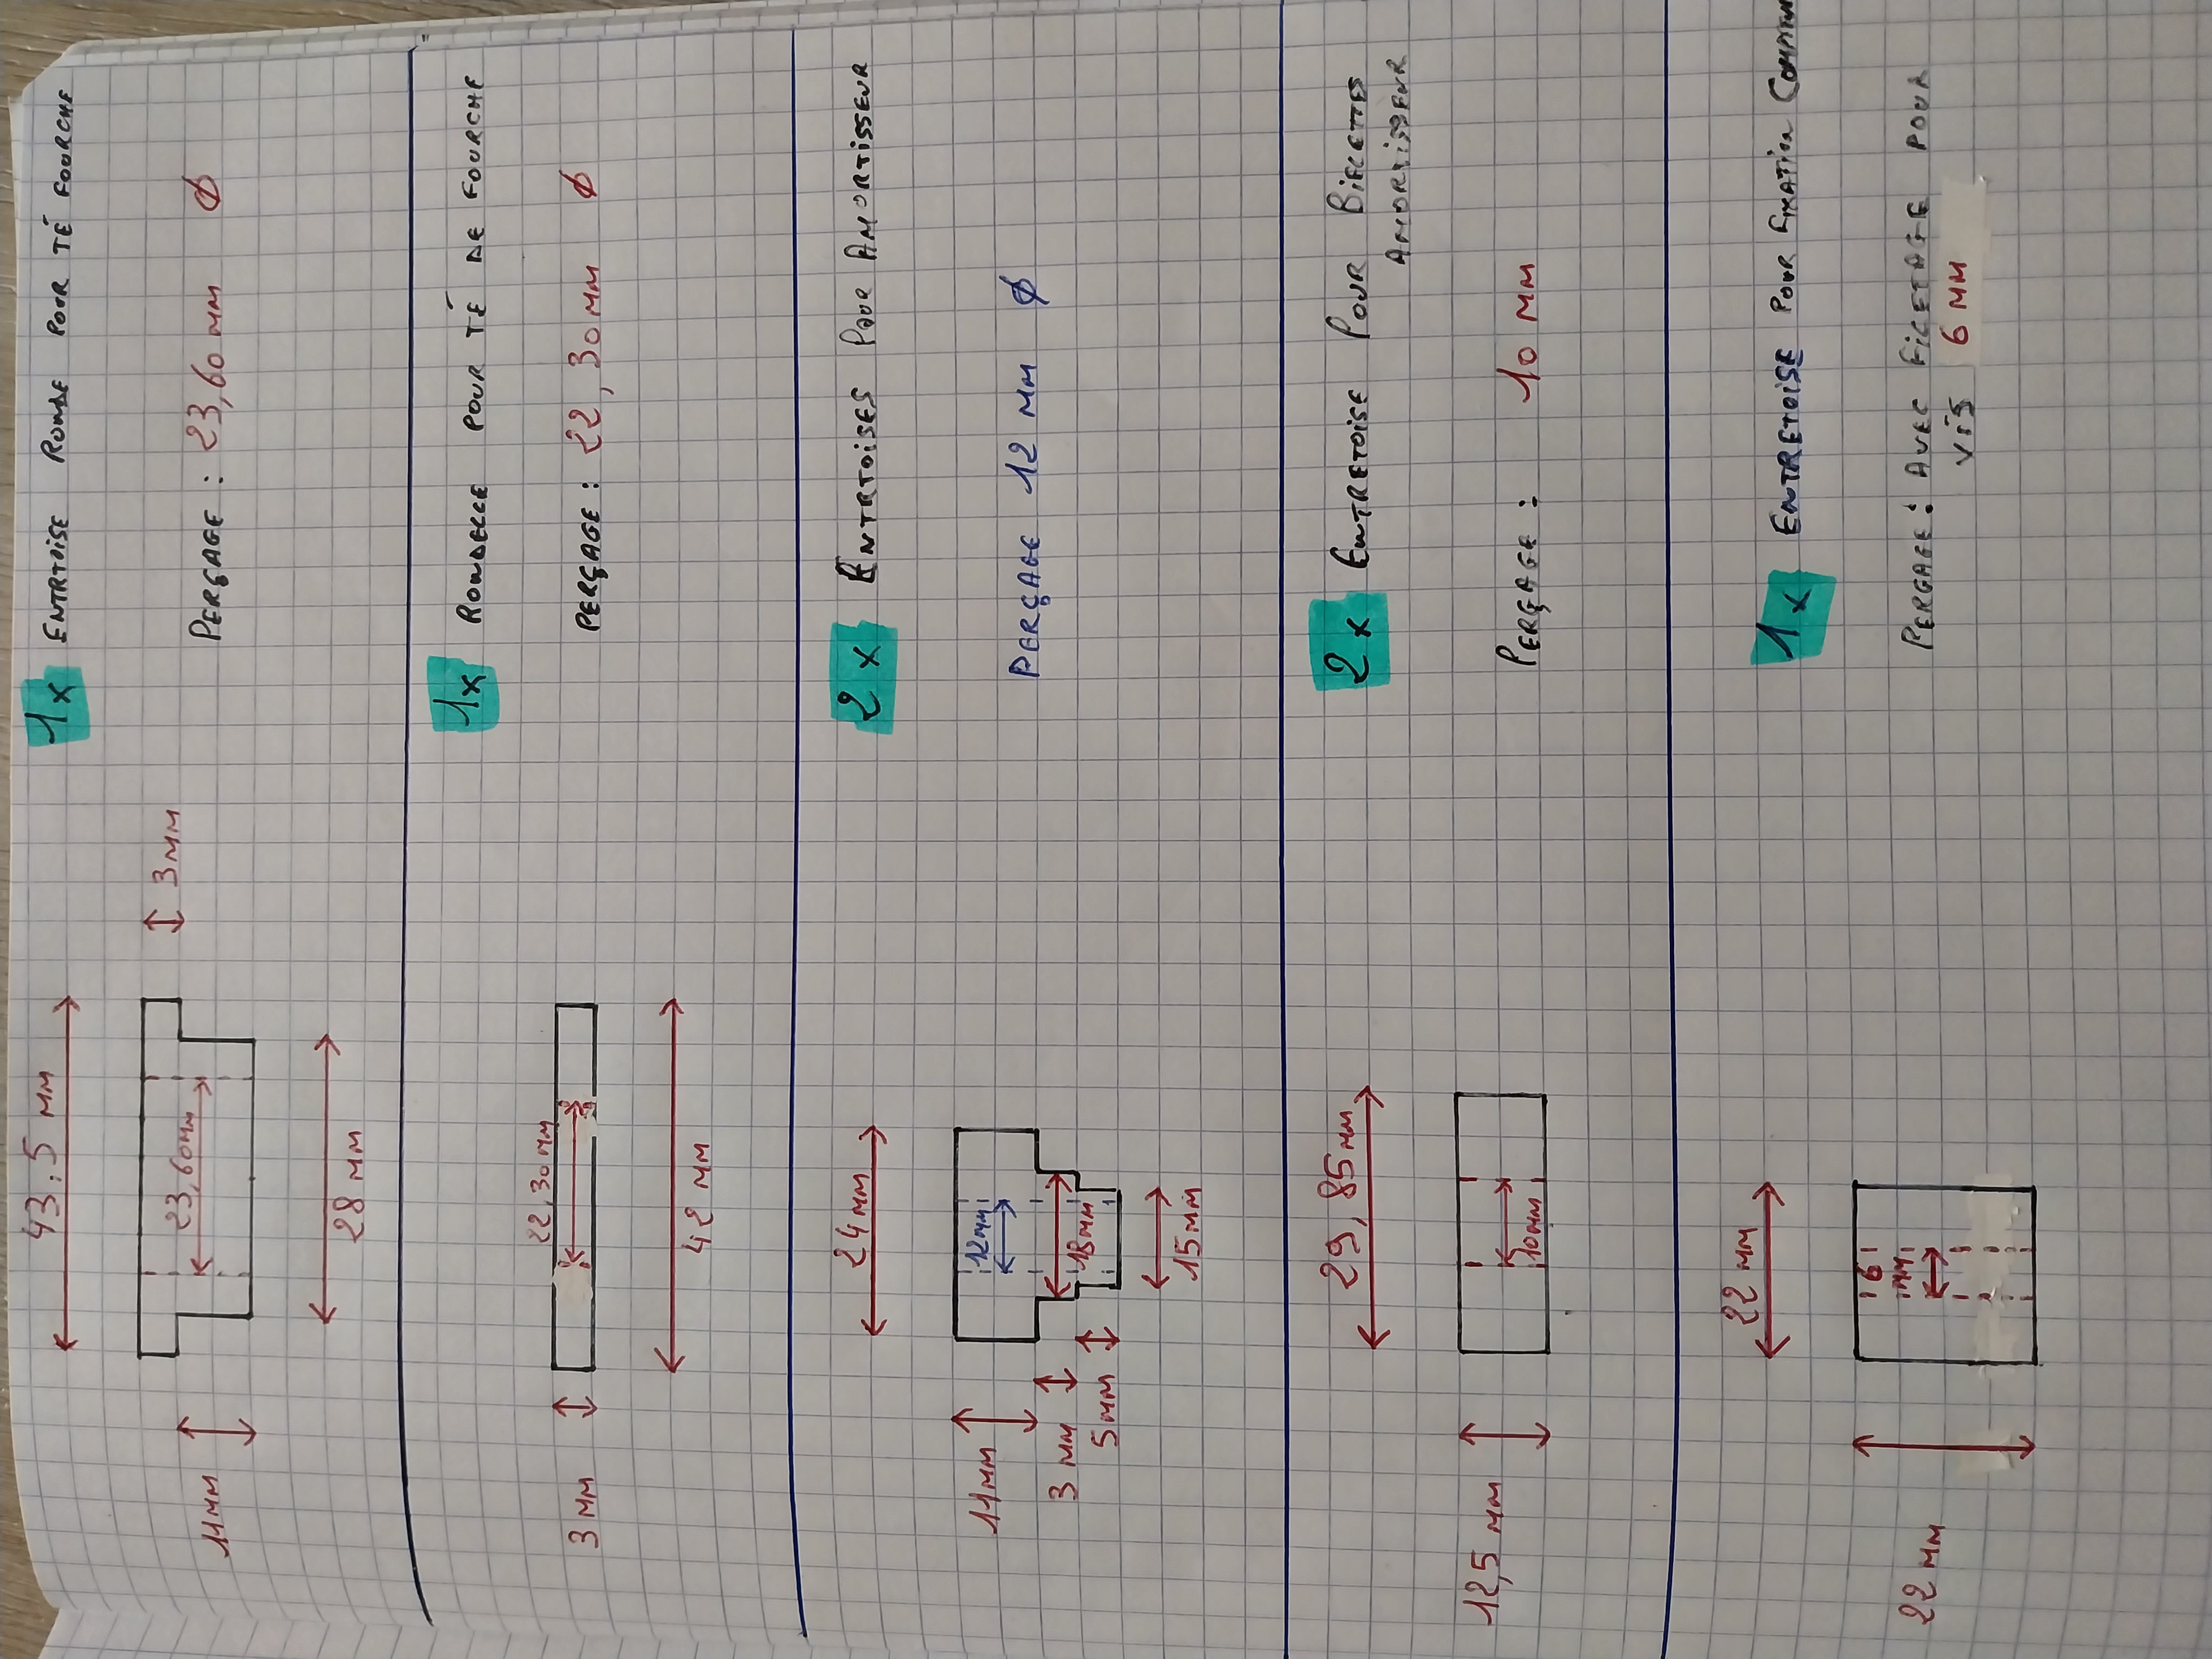 43,5 mm
1x ENTRTOISE RONDE POUR TÉ FOURCHE
3 mm
23,60 mm
11 mm
PERÇAGE : 23,60 mm ϕ
28 mm
1x RONDELLE POUR TÉ DE FOURCHE
22,30 mm
3 mm
PERÇAGE : 22,30 mm ϕ
42 mm
24 mm
2 x ENTRTOISES POUR AMORTISSEUR
12 mm
11 mm
PERÇAGE 12 mm ϕ
3 mm
18 mm
5 mm
15 mm
29,85 mm
2 x ENTRETOISE POUR BIELETTES
AMORTISSEUR
12,5 mm
10 mm
PERÇAGE : 10 mm
22 mm
1 x ENTRETOISE POUR FIXATION
6
mm
22 mm
PERÇAGE : AVEC FILETAGE POUR
VIS 6 mm